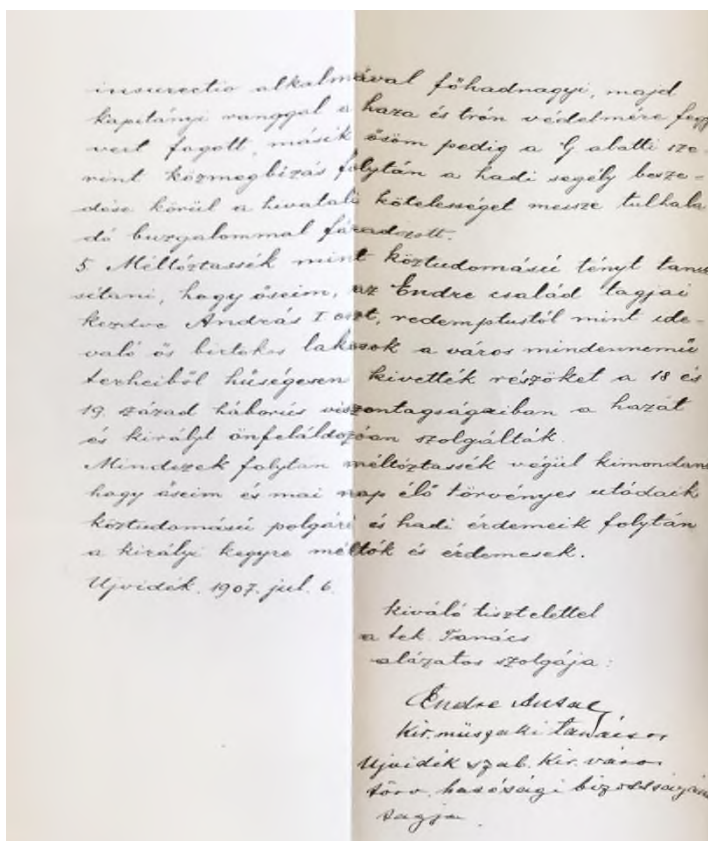 insurectio alkalmával főhadnagyi, majd
kapitányi ranggal a haza és trón védelmére fegy
vert fogott, másik ősöm pedig a G alatti sze-
rint közmegbizás folytán a hadi segély besze-
dése körül a hivatali kötelességet messze tulhala
dó buzgalommal fáradozott.
5. Méltóztassék mint köztudomásu tényt tanu
sitani, hogy őseim, az Endre család tagjai
kezdve András I. , redemptustól mint ide-
való ős birtokos lakosok a város mindennemü
terheiből hűségesen kivették részöket a 18 és
19. század háborús viszontagságaiban a hazát
és királyt önfeláldozóan szolgálták.
Mindezek folytán méltóztassék végül kimondani
hogy őseim és mai nap élő törvényes utódaik
köztudomásu polgári és hadi érdemeik folytán
a királyi kegyre méltók és érdemesek.
Ujvidék. 1907. jul. 6.
kiváló tisztelettel
a tek. Tanács
alázatos szolgája:
Endre Antal
kir. müszaki tanácsos
Ujvidék szab. kir. város
törv. hatósági bizottságának
tagja.